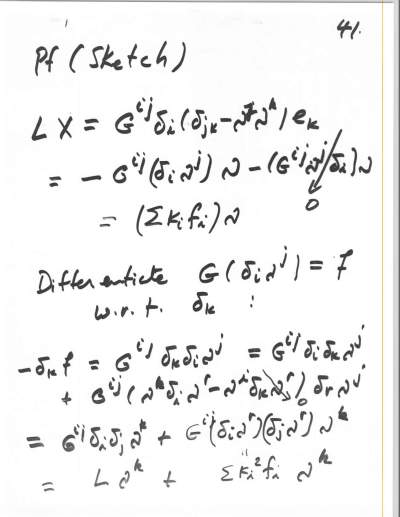 41.
Pf (Sketch)
L X = G^{ij} δ_i (δ_{jk} - ν^j ν^k) e_k
= - G^{ij} (δ_i ν^j) ν - (G^{ij} ν^j δ_i) ν
0
= (Σ κ_i f_i) ν
Differentiate G(δ_i ν^j) = f
w.r.t. δ_k :
-δ_k f = G^{ij} δ_k δ_i ν^j = G^{ij} δ_i δ_k ν^j
+ G^{ij} (ν^k δ_i ν^r - ν^i δ_k ν^r) δ_r ν^j
0
= G^{ij} δ_i δ_j ν^k + G^{ij} (δ_i ν^r)(δ_j ν^r) ν^k
= L ν^k + Σ κ_i^2 f_i ν^k